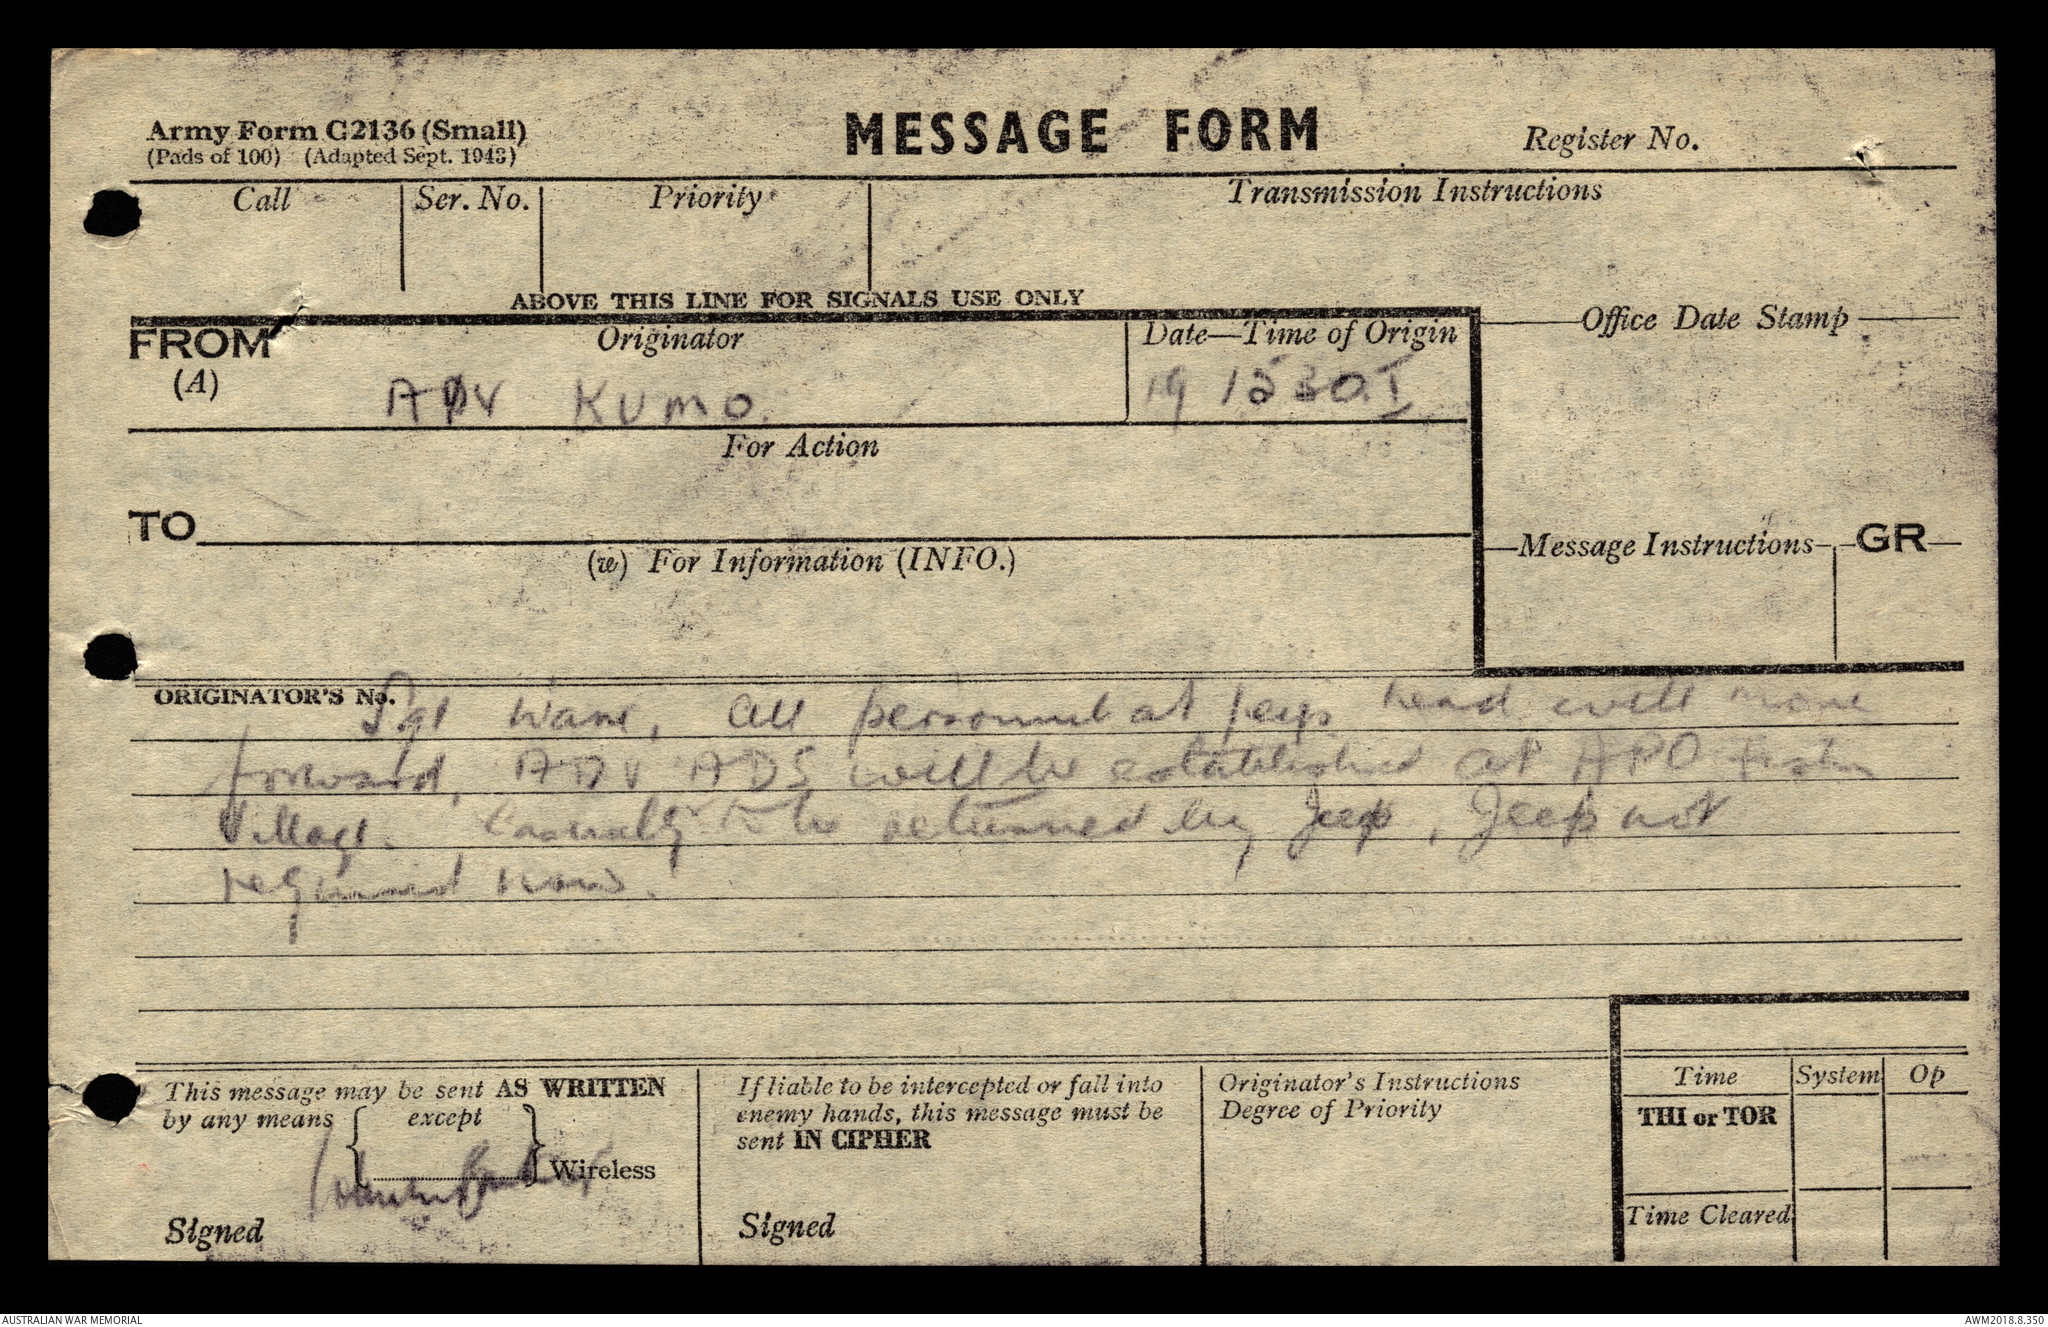 Army Form C2136 (Small)
(Pads of 100) (Adapted Sept. 1943)
MESSAGE FORM
Register No.
Call
Ser. No.
Priority
Transmission Instructions
ABOVE THIS LINE FOR SIGNALS USE ONLY
FROM
(A)
Originator
Date—Time of Origin
Office Date Stamp
ADV KUMO.
19 1530.I
For Action
TO
(w) For Information (INFO.)
Message Instructions
GR
ORIGINATOR'S No.
Sgt, All personnel at jeep head will move
forward, ADV ADS will be established at APO
Village. Casualty to be returned by Jeep, Jeep not
required now.
This message may be sent AS WRITTEN
by any means
except
Wireless
Signed
If liable to be intercepted or fall into
enemy hands, this message must be
sent IN CIPHER
Signed
Originator's Instructions
Degree of Priority
Time
System
Op
THI or TOR
Time Cleared
AUSTRALIAN WAR MEMORIAL
AWM2018.8.350